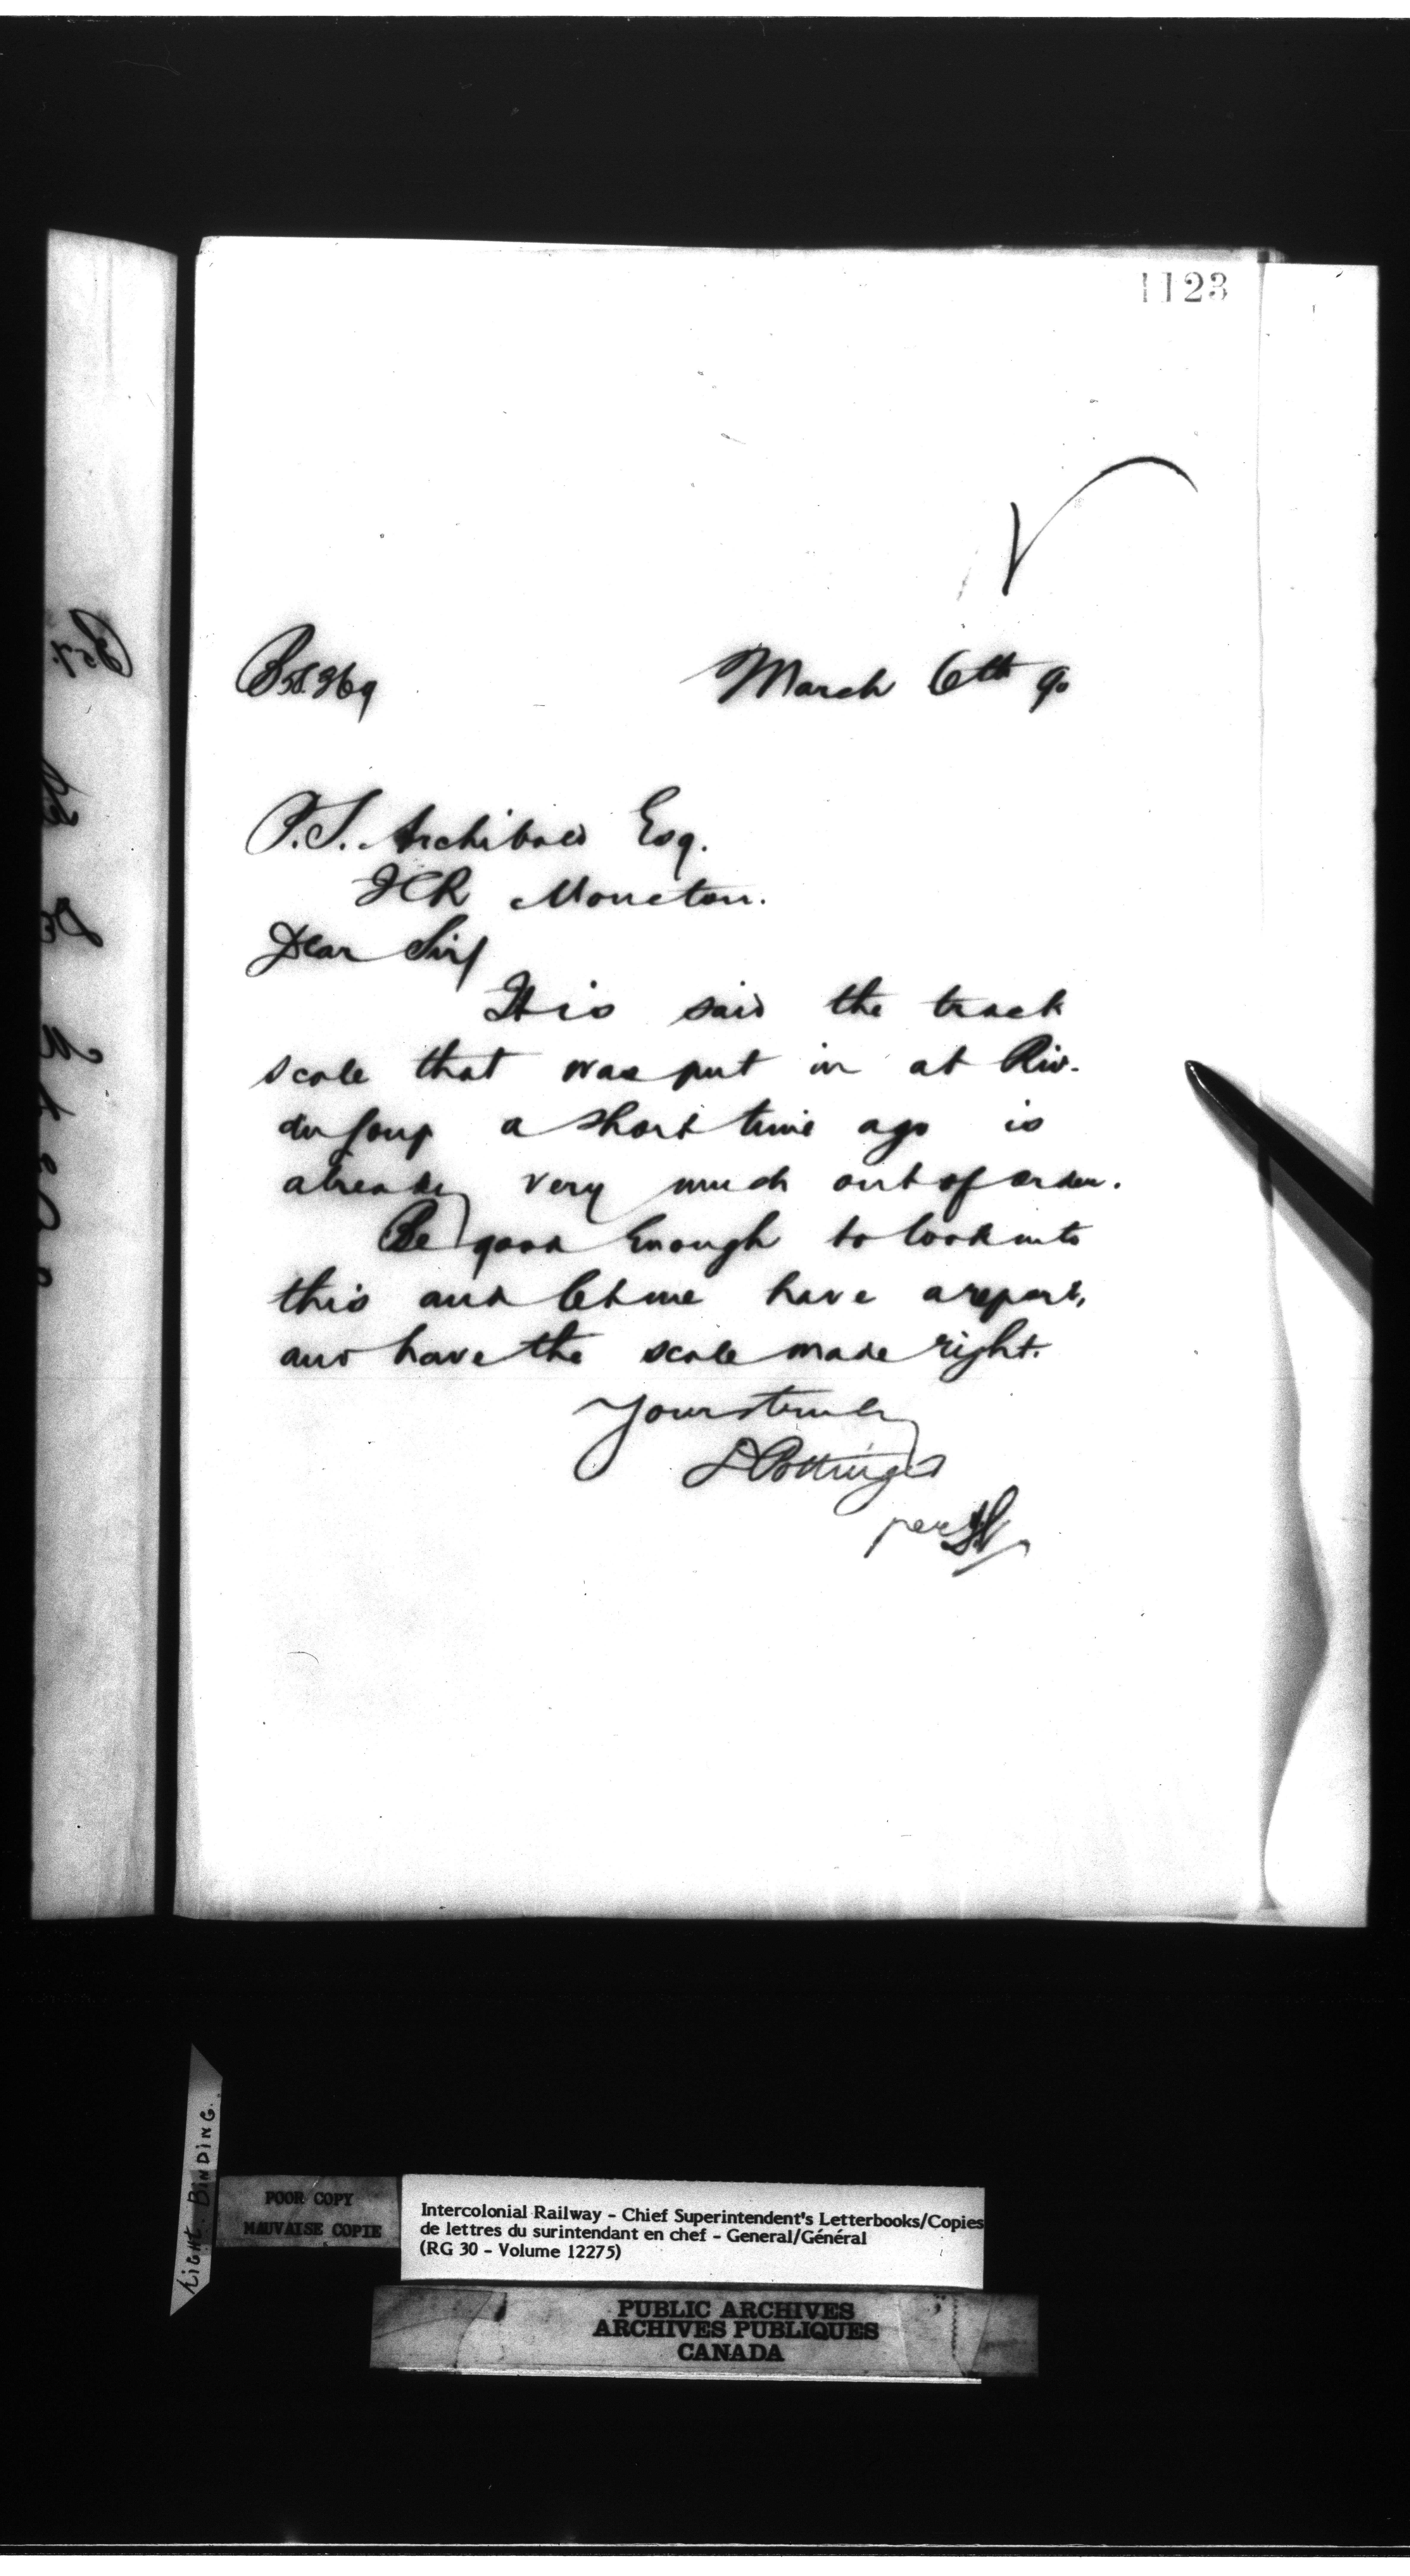 1123
March 6th 90
P.S. Archibald Esq.
ICR Moncton.
Dear Sir/
It is said the track
scale that was put in at Riv.
du Loup a short time ago is
already very much out of order.
Be good enough to look into
this and let me have a report,
and have the scale made right.
Yours truly
D Pottinger
per
TIGHT BINDING.
POOR COPY
MAUVAISE COPIE
Intercolonial Railway - Chief Superintendent's Letterbooks/Copies
de lettres du surintendant en chef - General/Général
(RG 30 - Volume 12275)
PUBLIC ARCHIVES
ARCHIVES PUBLIQUES
CANADA